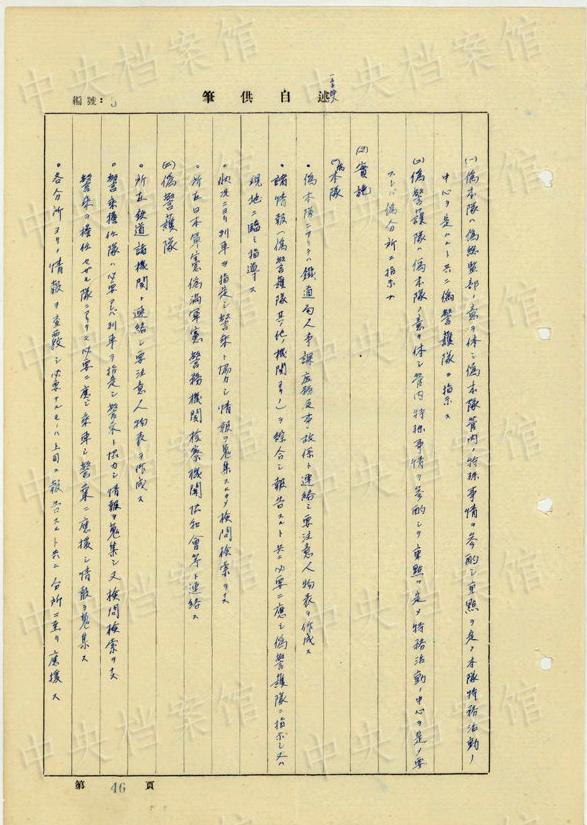 編號：5
筆供自述
(一)偽本隊ハ偽総監部ノ意ヲ体シ偽本隊管内ノ特殊事情ヲ参酌シ重点ヲ定メ本隊特務活動ノ
中心ヲ定ムルト共ニ偽警護隊ニ指示ス
(二)偽警護隊ハ偽本隊ノ意ヲ体シ管内特殊事情ヲ参酌シテ重點ヲ定メ特務活動ノ中心ヲ定メ要
スレバ偽分所ニ指示ス
(2)實施
(一)偽本隊
・偽本隊ニアリテハ鐵道局人事課庶務係事故係ト連絡シ要注意人物表ヲ作成ス
・諸情報（偽警護隊其ノ他ノ機関ヨリノ）ヲ綜合シ報告スルト共ニ必要ニ應ジ偽警護隊ニ指示シ又ハ
現地ニ臨ミ指導ス
・状況ニヨリ列車ヲ指定シ警乗ト協力シ情報ヲ蒐集スルタメ検問検索ヲナス
・所在日本軍憲偽満軍憲警務機関検察機関協和會等ト連絡ス
(二)偽警護隊
・所在鉄道諸機関ト連絡シ要注意人物表ヲ作成ス
・警乗擔任隊ハ必要アレバ列車ヲ指定シ警乗ト協力シ情報ヲ蒐集シ又検問検索ヲナス
警乗ヲ擔任セザル隊ニアリテハ必要ニ應ジ乗車シ警乗ニ應援シ情報ヲ蒐集ス
・各分所ヨリノ情報ヲ査覈シ必要ナルモノハ上司ニ報告スルト共ニ分所ニ至リ應援ス
第 46 頁
中央档案馆